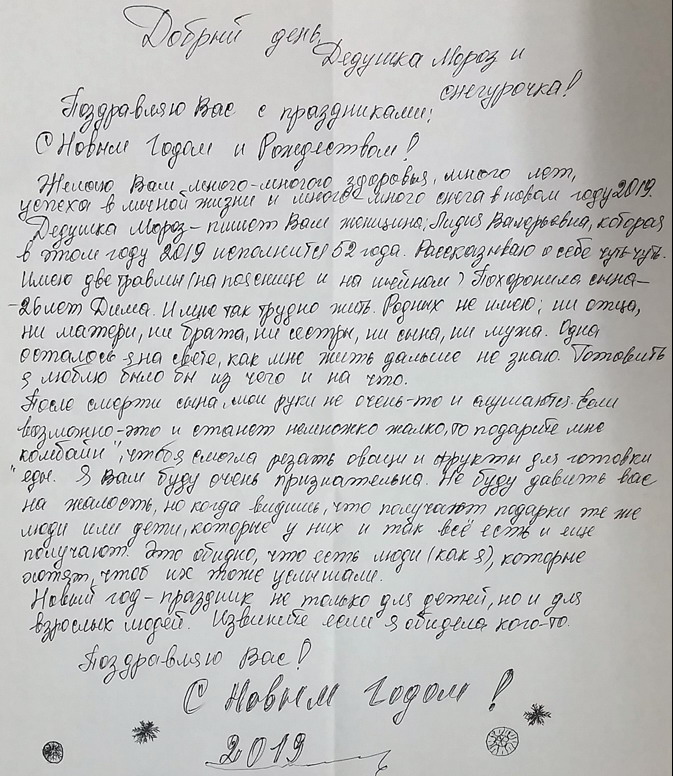 Добрый день,
Дедушка Мороз и
снегурочка!
Поздравляю Вас с праздниками:
С Новым Годом и Рождеством!
Желаю Вам много-много здоровья, много лет,
успеха в личной жизни и много-много снега в новом году 2019.
Дедушка Мороз - пишет Вам женщина: Лидия Валерьевна, которая
в этом году 2019 исполнится 52 года. Рассказываю о себе чуть-чуть.
Имею две травмы (на пояснице и на шейном) Похоронила сына-
-26 лет Дима. И мне так трудно жить. Родных не имею: ни отца,
ни матери, ни брата, ни сестры, ни сына, ни мужа. Одна
осталось я на свете, как мне жить дальше не знаю. Готовить
я люблю было бы из чего и на что.
После смерти сына, мои руки не очень-то и слушаются. Если
возможно-это и станет немножко жалко, то подарите мне
"комбайн", чтоб я смогла резать овощи и фрукты для готовки
еды. Я Вам буду очень признательна. Не буду давить вас
на жалость, но когда видишь, что получают подарки те же
люди или дети, которые у них и так всё есть и еще
получают. Это обидно, что есть люди (как я), которые
хотят, чтоб их тоже услышали.
Новый год - праздник не только для детей, но и для
взрослых людей. Извините если я обидела кого-то.
Поздравляю Вас!
С Новым Годом!
2019